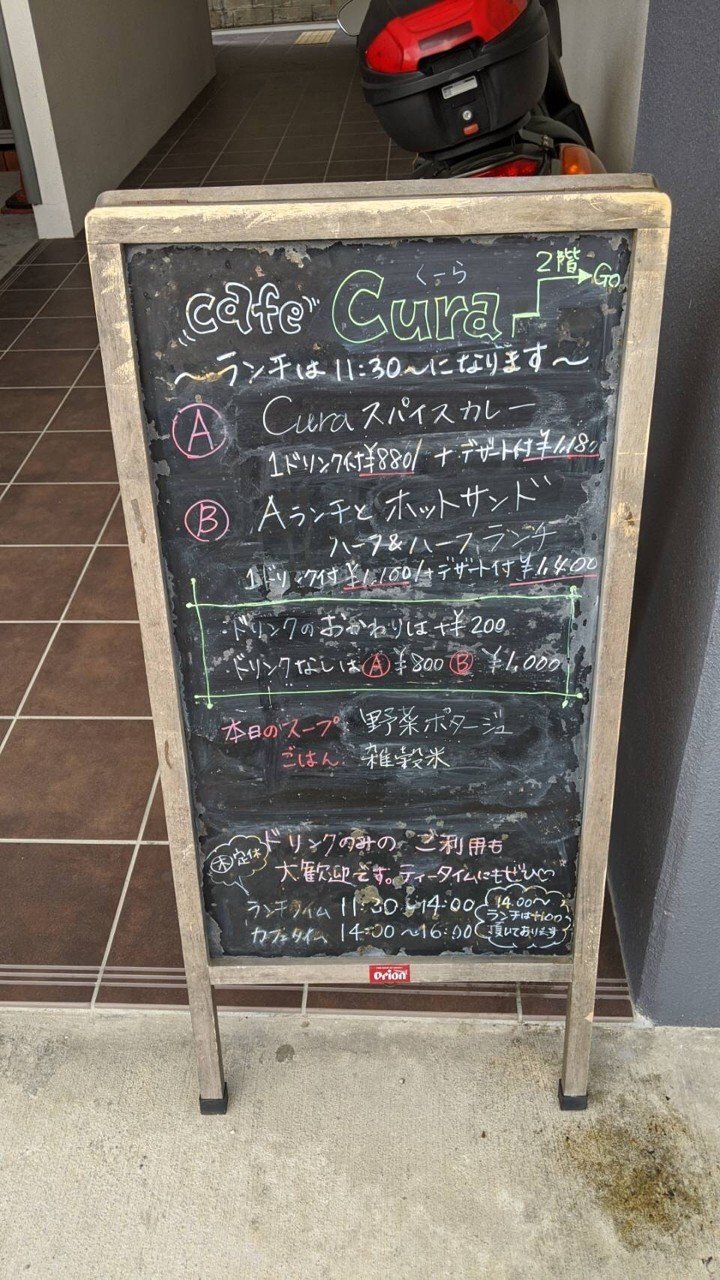 くーら
cafe Cura 2階 Go
～ランチは11:30～になります～
Ⓐ Cura スパイスカレー
1ドリンク付¥880/ + デザート付¥1,180
Ⓑ Aランチとホットサンド
ハーフ&ハーフランチ
1ドリンク付¥1,100/+デザート付¥1,400
・ドリンクのおかわりは+¥200
・ドリンクなしはⒶ¥800 Ⓑ ¥1,000
本日のスープ 野菜ポタージュ
ごはん 雑穀米
㊍定休
ドリンクのみの ご利用も
大歓迎です。ティータイムにもぜひ♡
ランチタイム 11:30～14:00
カフェタイム 14:00～16:00
14:00～
ランチは+100
頂いております
Orion